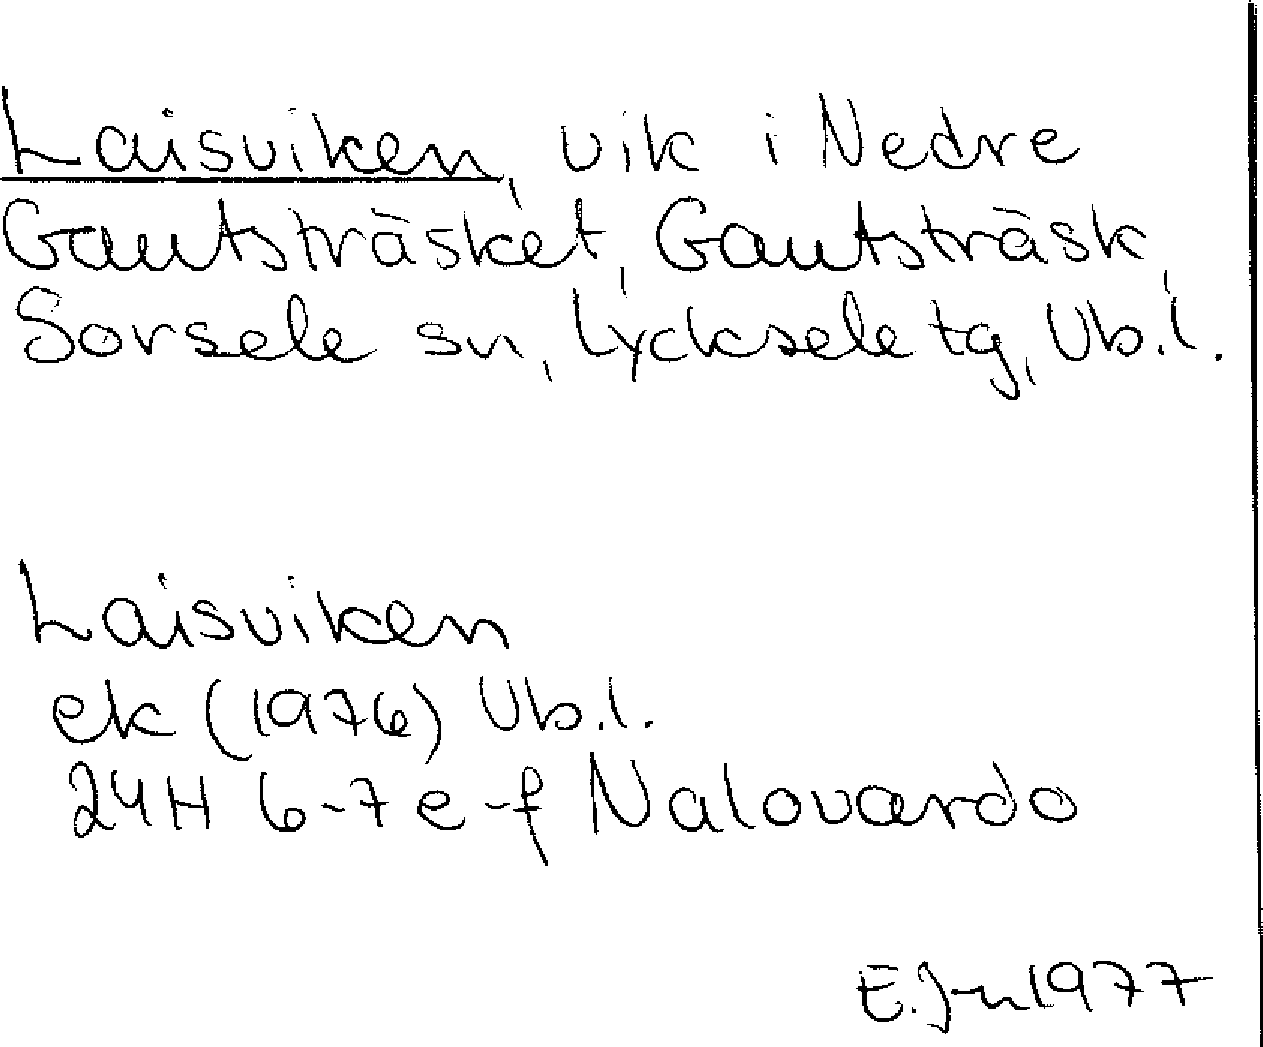 Laisviken, vik i Nedre
Gautsträsket, Gautsträsk,
Sorsele sn, Lycksele tg, Vb.l.
Laisviken
ek (1976) Vb.l.
24H 6-7 e-f Nalovardo
E. J-n 1977